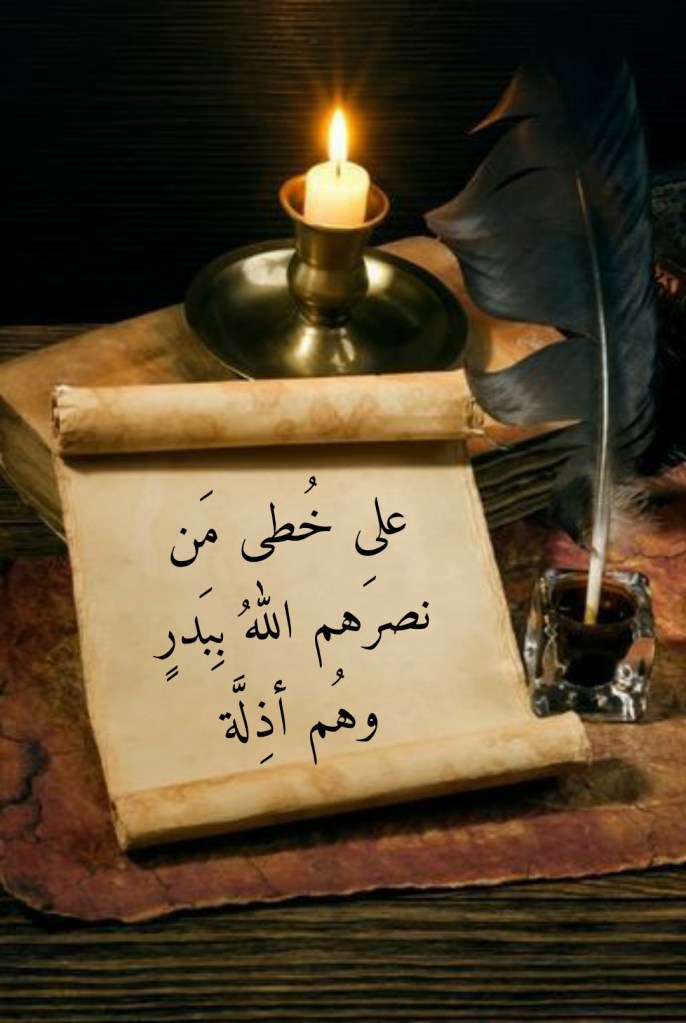 على خُطى مَن
نصرَهم اللهُ بِبَدرٍ
وهُم أذِلَّة